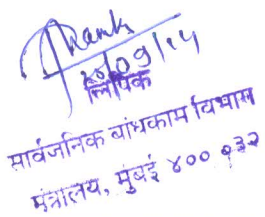 20/09/14
लिपिक
सार्वजनिक बांधकाम विभाग
मंत्रालय, मुंबई ४०० ०३२